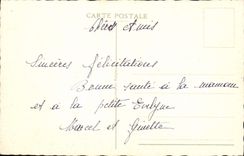 CARTE POSTALE
Chers Amis
Sincères félicitations
Bonne santé à la maman
et à la petite Evelyne
Marcel et Ginette